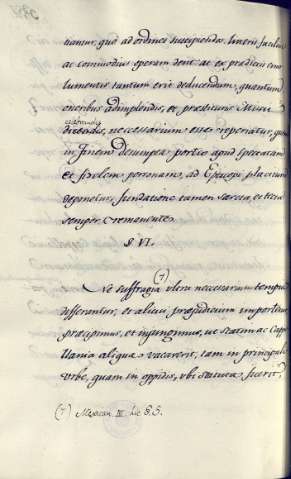 nantur, quod ad ordines suscipiendos literis facilius
ac commodius operam dent ac ex praedictis emo
lumentis tantum erit deducendum, quantum
oneribus adimplendis, et
necessarium esse reperiatur, quae
in finem deinceps portio apud spectatam
et fidelem personam, ad Episcopi placitum
deponetur, fundatione tamen sarcta, et tecta
semper remanente.
§ VI.
(7)
Ne suffragia ultra necessarium tempus
differantur, et alicui praejudicium importetur
praecipimus, et injungimus, ut statim ac Cappe
llania aliqua vacaverit, tam in principali
Urbe, quam in oppidis, ubi statuta fuerit,
(7) Mexican. III. hic § 5.